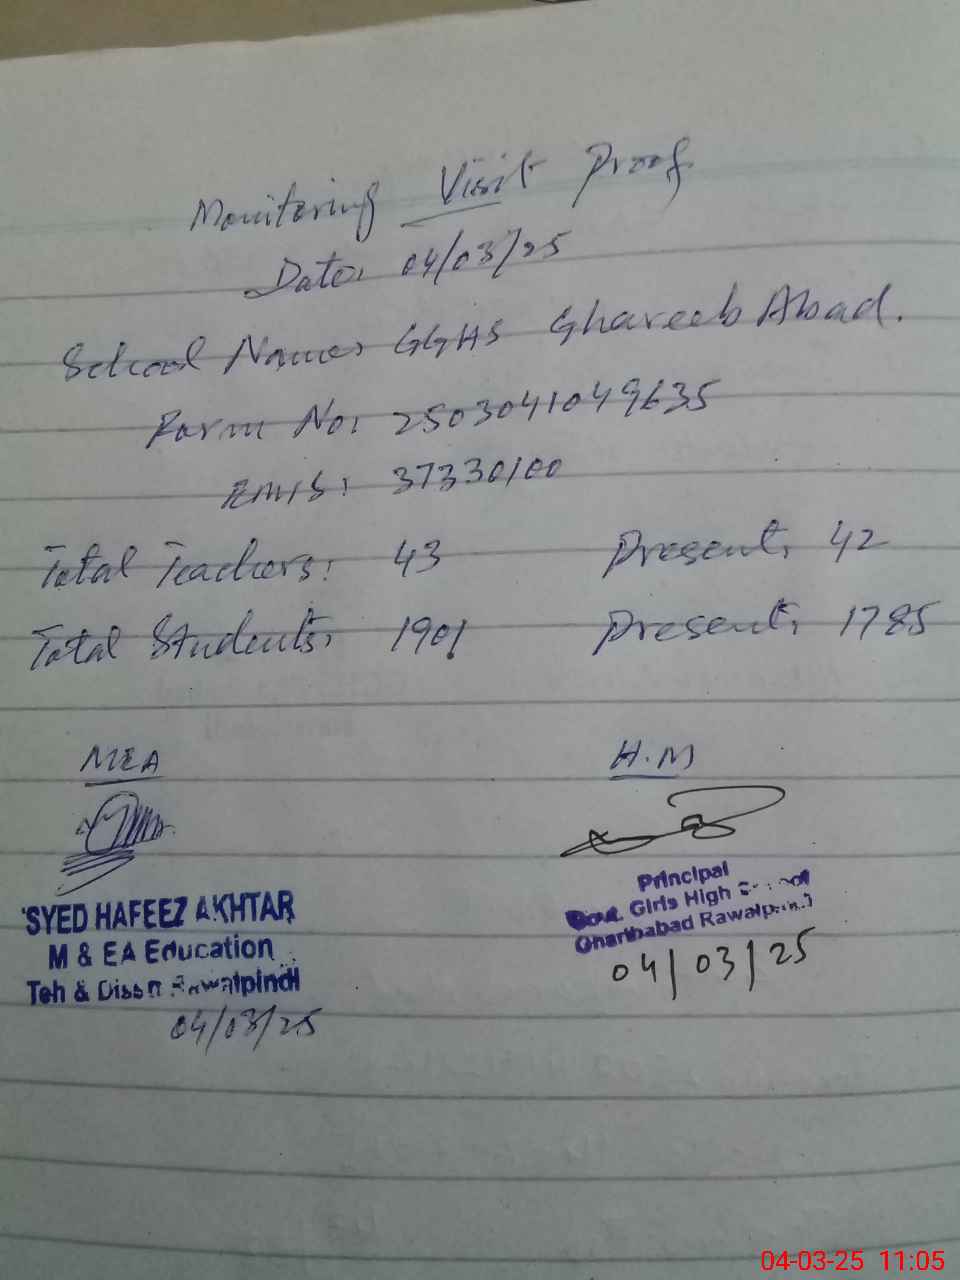 Monitoring Visit Proof
Date: 04/03/25
School Name: GGHS Ghareeb Abad.
Form No: 2503041049635
EMIS: 37330100
Total Teachers: 43 Present: 42
Total Students: 1901 Present: 1785
MEA H.M
SYED HAFEEZ AKHTAR
M & EA Education
Teh & Disst Rawalpindi
04/03/25
Principal
Govt. Girls High School
Gharibabad Rawalpindi
04/03/25
04-03-25 11:05